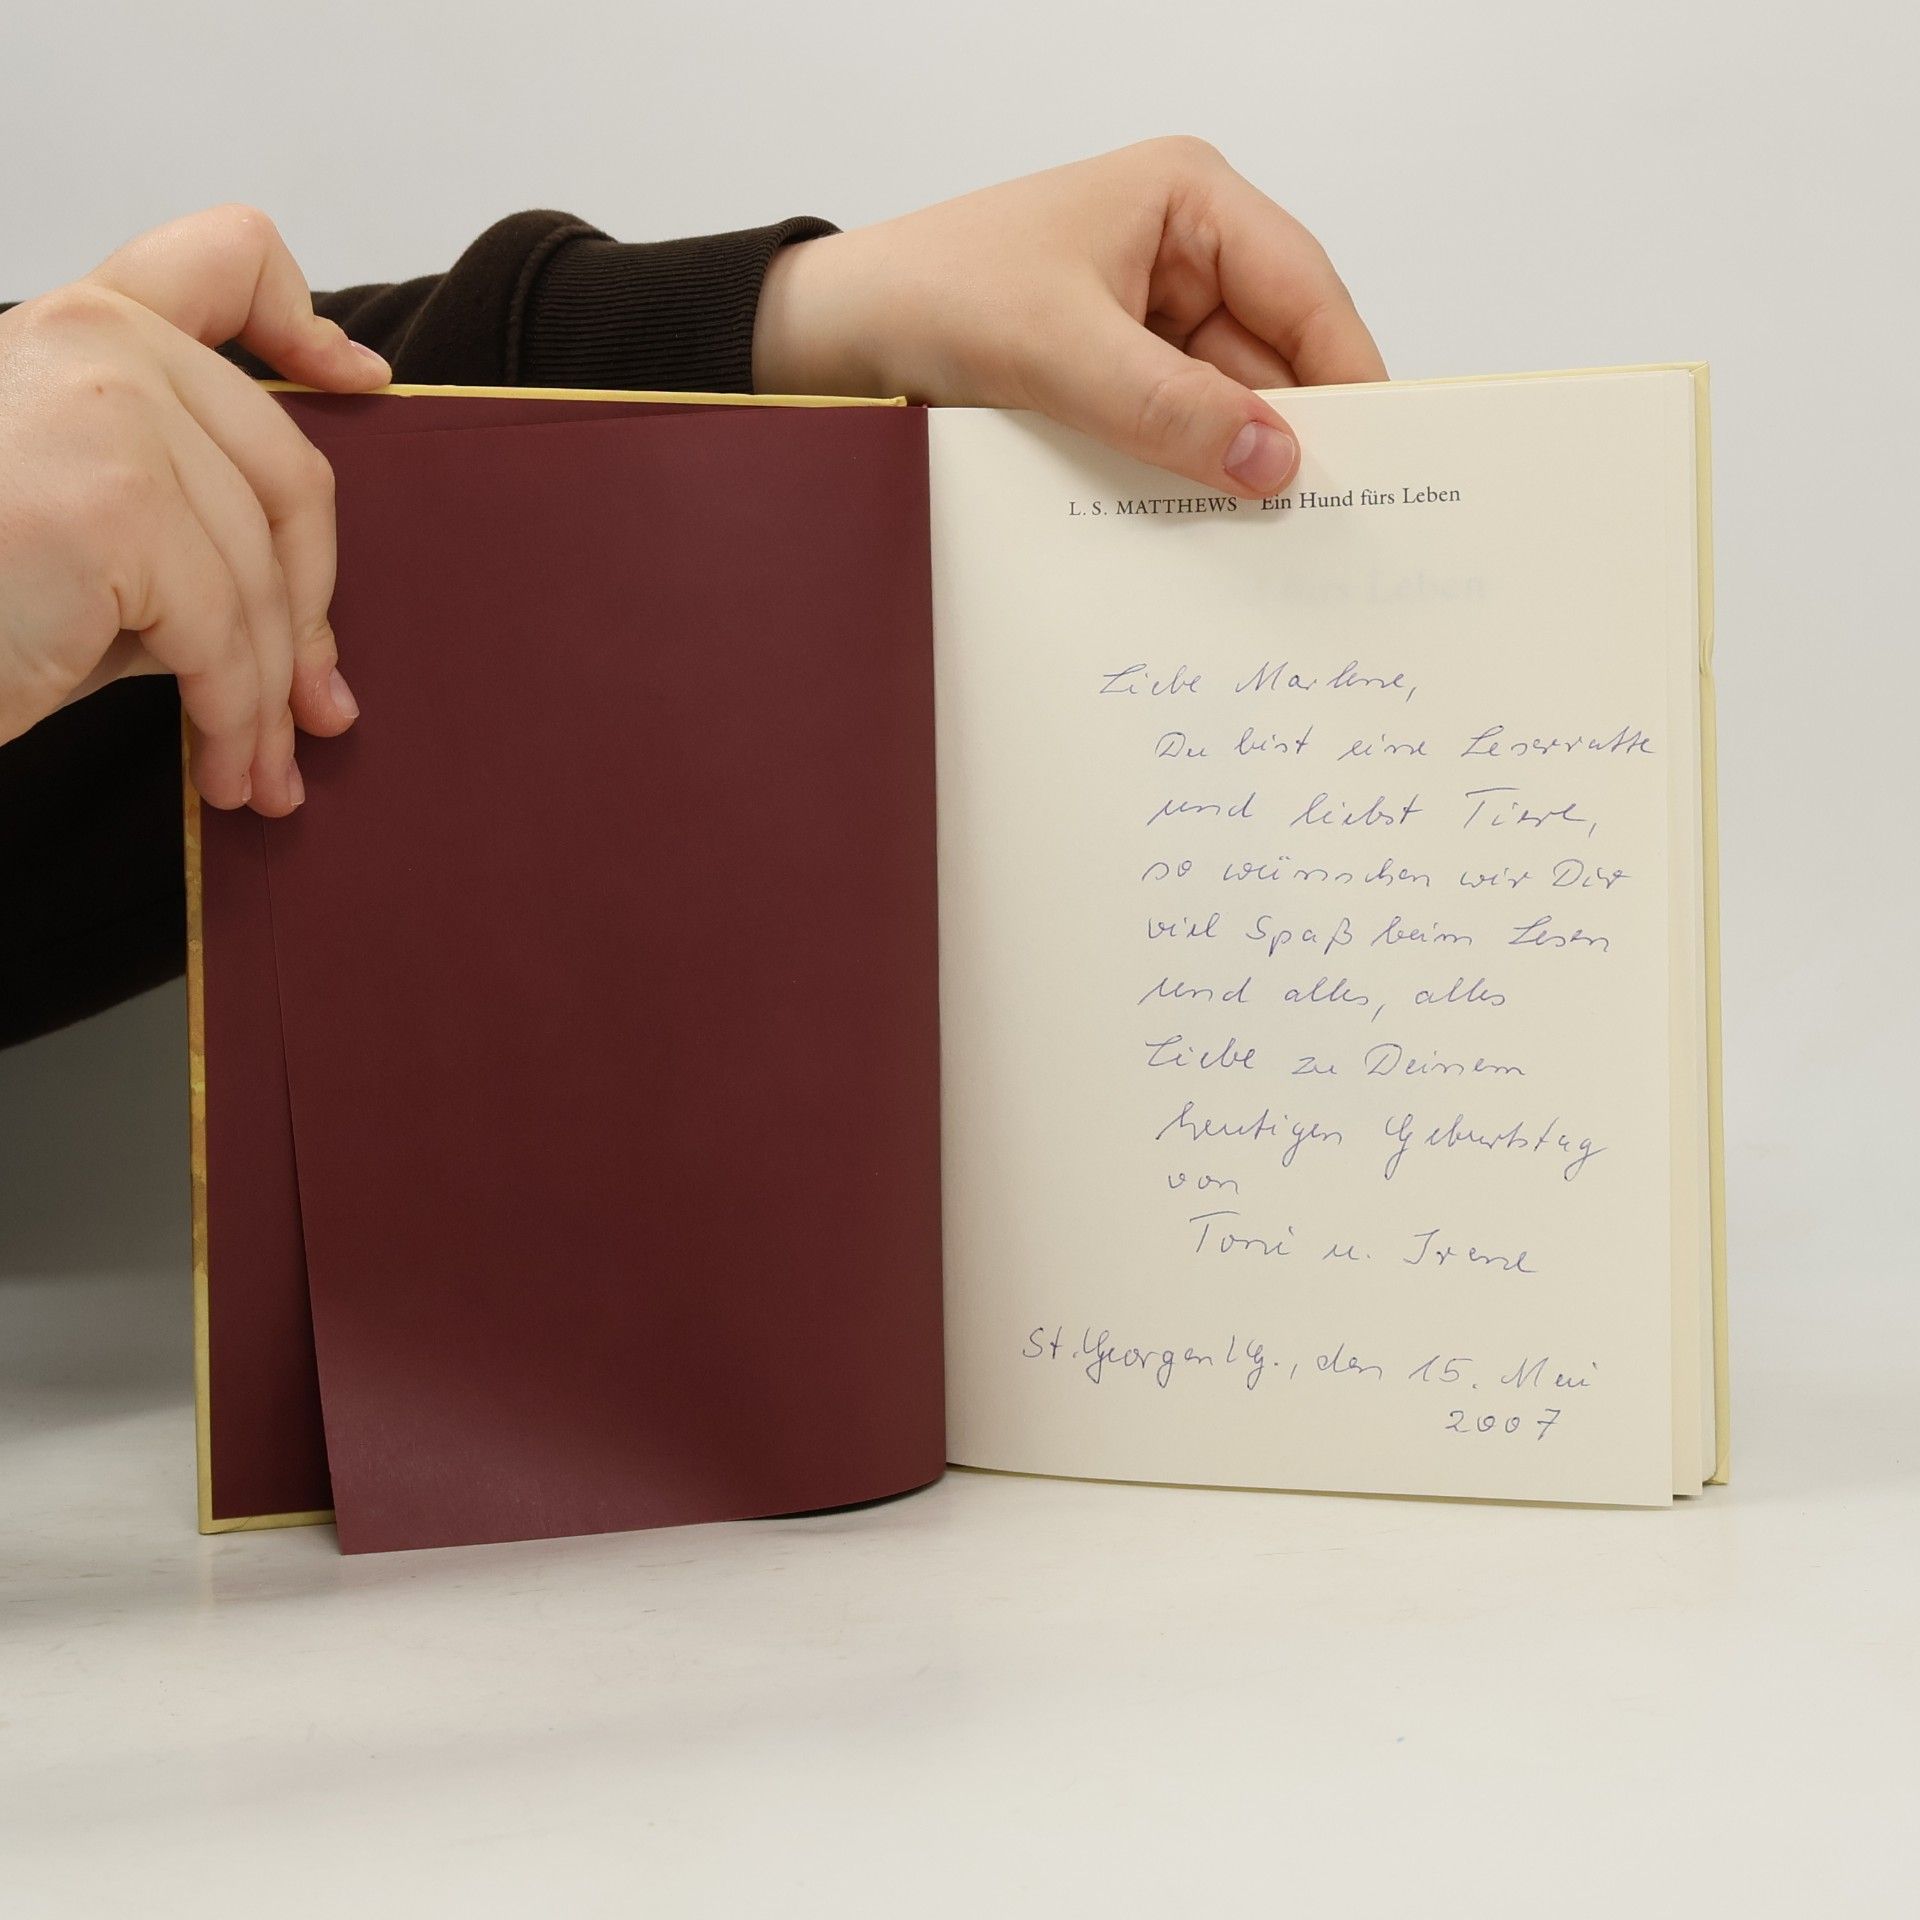 L. S. MATTHEWS Ein Hund fürs Leben
fürs Leben
Liebe Marlene,
Du bist eine Leseratte
und liebst Tiere,
so wünschen wir Dir
viel Spaß beim Lesen
und alles, alles
Liebe zu Deinem
heutigen Geburtstag
von
Toni u. Irene
St. Georgen/G., den 15. Mai
2007